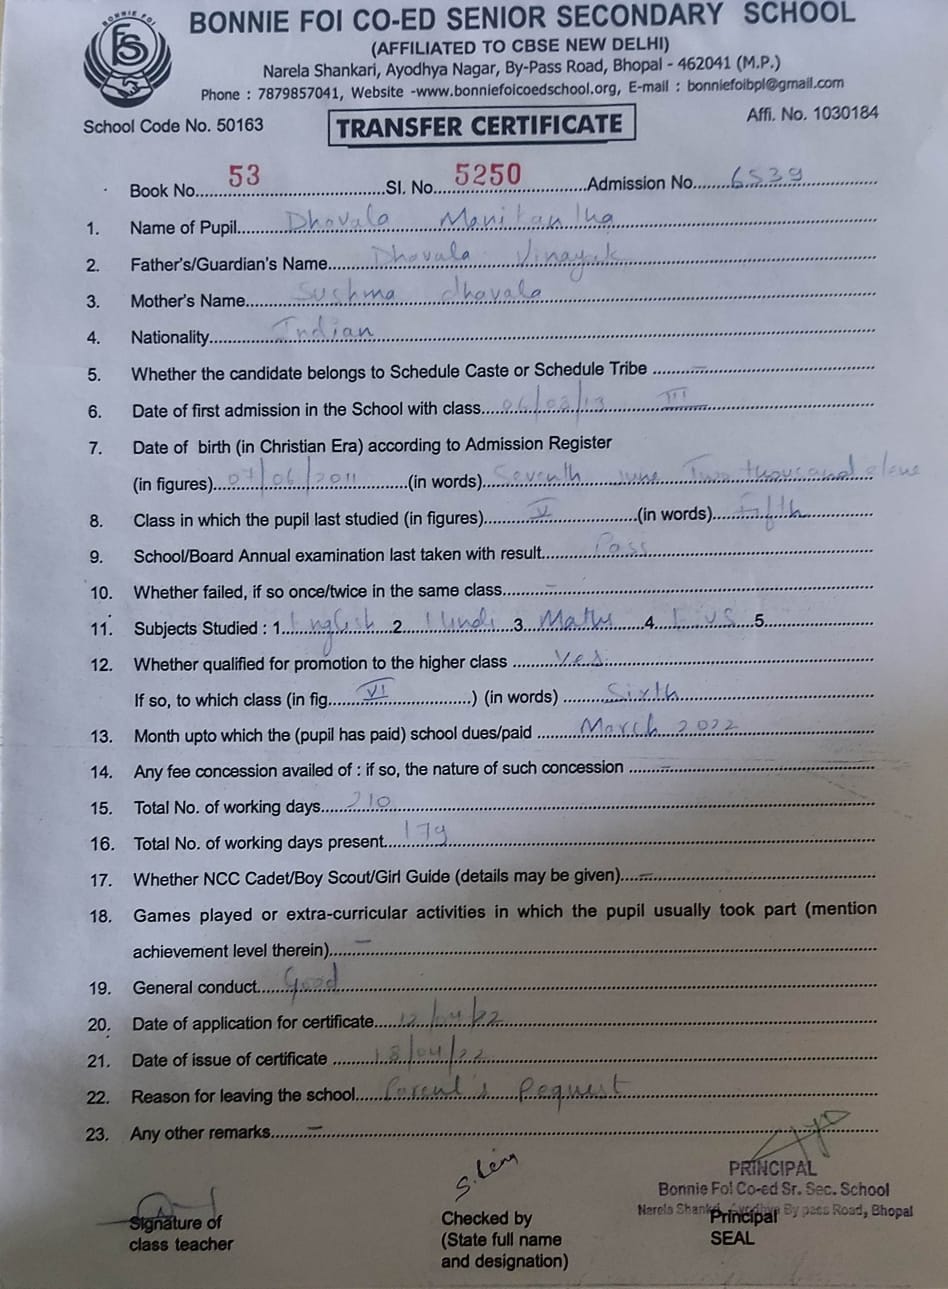 BONNIE FOI
BONNIE FOI CO-ED SENIOR SECONDARY SCHOOL
(AFFILIATED TO CBSE NEW DELHI)
Narela Shankari, Ayodhya Nagar, By-Pass Road, Bhopal - 462041 (M.P.)
Phone : 7879857041, Website -www.bonniefoicoedschool.org, E-mail : bonniefoibpl@gmail.com
School Code No. 50163 TRANSFER CERTIFICATE Affi. No. 1030184
Book No. 53 Sl. No. 5250 Admission No. 6539
1. Name of Pupil Dhavala Manikantha
2. Father's/Guardian's Name Dhavala Vinayak
3. Mother's Name Sushma dhavala
4. Nationality Indian
5. Whether the candidate belongs to Schedule Caste or Schedule Tribe –
6. Date of first admission in the School with class 06/08/19 III
7. Date of birth (in Christian Era) according to Admission Register
(in figures) 07/06/2011 (in words) Seventh June Two thousand eleve
8. Class in which the pupil last studied (in figures) V (in words) Fifth
9. School/Board Annual examination last taken with result Pass
10. Whether failed, if so once/twice in the same class –
11. Subjects Studied : 1. English 2. Hindi 3. Maths 4. E.VS 5.
12. Whether qualified for promotion to the higher class Yes
If so, to which class (in fig. VI ) (in words) Sixth
13. Month upto which the (pupil has paid) school dues/paid March 2022
14. Any fee concession availed of : if so, the nature of such concession –
15. Total No. of working days 210
16. Total No. of working days present 179
17. Whether NCC Cadet/Boy Scout/Girl Guide (details may be given) –
18. Games played or extra-curricular activities in which the pupil usually took part (mention
achievement level therein) –
19. General conduct Good
20. Date of application for certificate 12/04/22
21. Date of issue of certificate 18/04/22
22. Reason for leaving the school Parent's Request
23. Any other remarks –
PRINCIPAL
Bonnie Foi Co-ed Sr. Sec. School
Narela Shankri, Ayodhya By pass Road, Bhopal
Signature of Checked by Principal
class teacher (State full name SEAL
and designation)